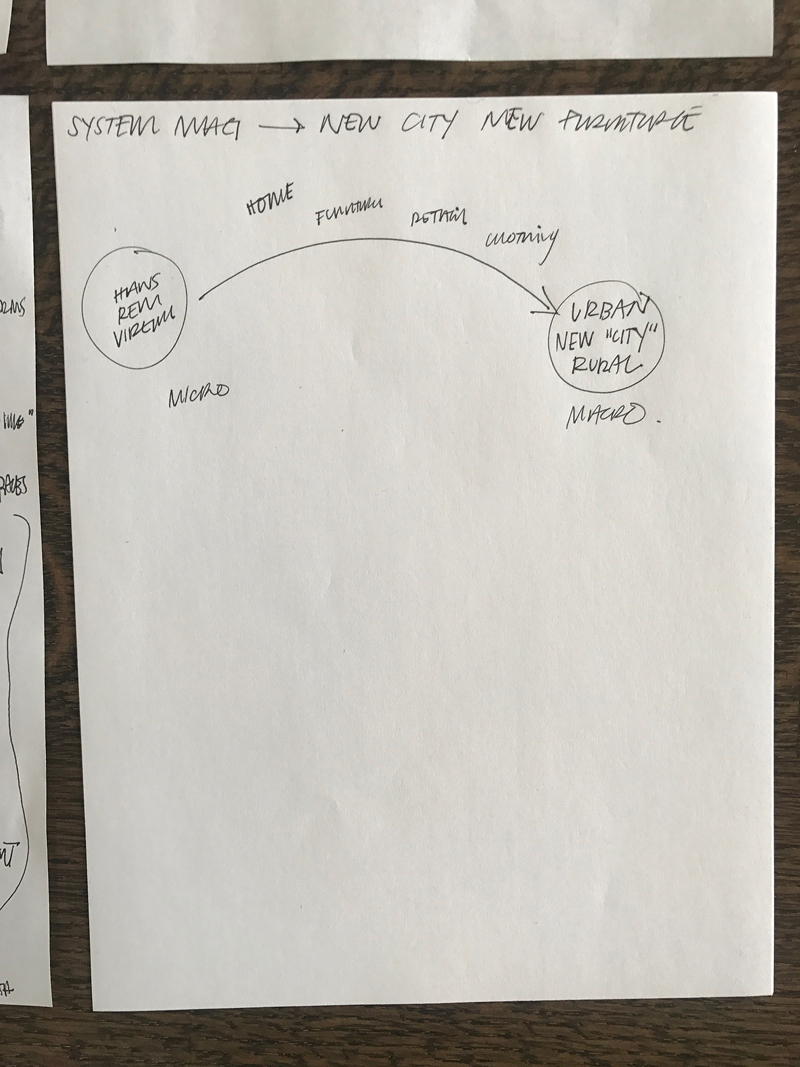 SYSTEM MAG → NEW CITY NEW FURNITURE
HOME
FURNITURE
RETAIL
CLOTHING
HANS
REM
VIRGIL
MICRO
URBAN
NEW "CITY"
RURAL
MACRO.